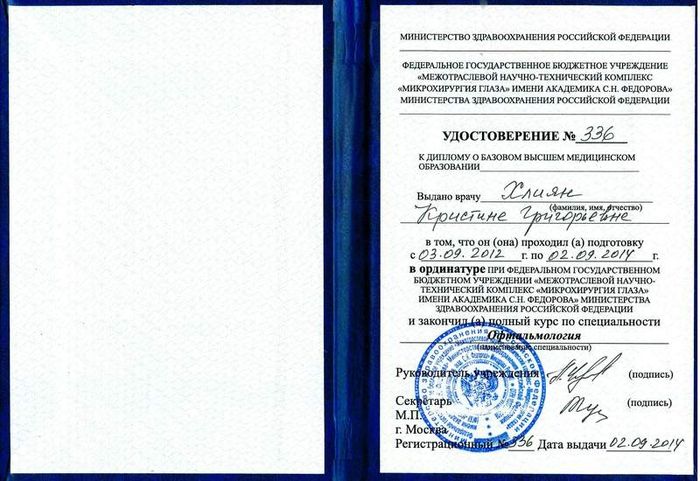 МИНИСТЕРСТВО ЗДРАВООХРАНЕНИЯ РОССИЙСКОЙ ФЕДЕРАЦИИ
ФЕДЕРАЛЬНОЕ ГОСУДАРСТВЕННОЕ БЮДЖЕТНОЕ УЧРЕЖДЕНИЕ
«МЕЖОТРАСЛЕВОЙ НАУЧНО-ТЕХНИЧЕСКИЙ КОМПЛЕКС
«МИКРОХИРУРГИЯ ГЛАЗА» ИМЕНИ АКАДЕМИКА С.Н. ФЕДОРОВА»
МИНИСТЕРСТВА ЗДРАВООХРАНЕНИЯ РОССИЙСКОЙ ФЕДЕРАЦИИ
УДОСТОВЕРЕНИЕ № 336
К ДИПЛОМУ О БАЗОВОМ ВЫСШЕМ МЕДИЦИНСКОМ
ОБРАЗОВАНИИ
Выдано врачу Хлиян
(фамилия, имя, отчество)
Кристине Григорьевне
в том, что он (она) проходил (а) подготовку
с 03.09.2012 г. по 02.09.2014 г.
в ординатуре ПРИ ФЕДЕРАЛЬНОМ ГОСУДАРСТВЕННОМ
БЮДЖЕТНОМ УЧРЕЖДЕНИИ «МЕЖОТРАСЛЕВОЙ НАУЧНО-
ТЕХНИЧЕСКИЙ КОМПЛЕКС «МИКРОХИРУРГИЯ ГЛАЗА»
ИМЕНИ АКАДЕМИКА С.Н. ФЕДОРОВА» МИНИСТЕРСТВА
ЗДРАВООХРАНЕНИЯ РОССИЙСКОЙ ФЕДЕРАЦИИ
и закончил (а) полный курс по специальности
Офтальмология
(наименование специальности)
Руководитель учреждения (подпись)
Секретарь (подпись)
М.П.
г. Москва
Регистрационный № 336 Дата выдачи 02.09.2014